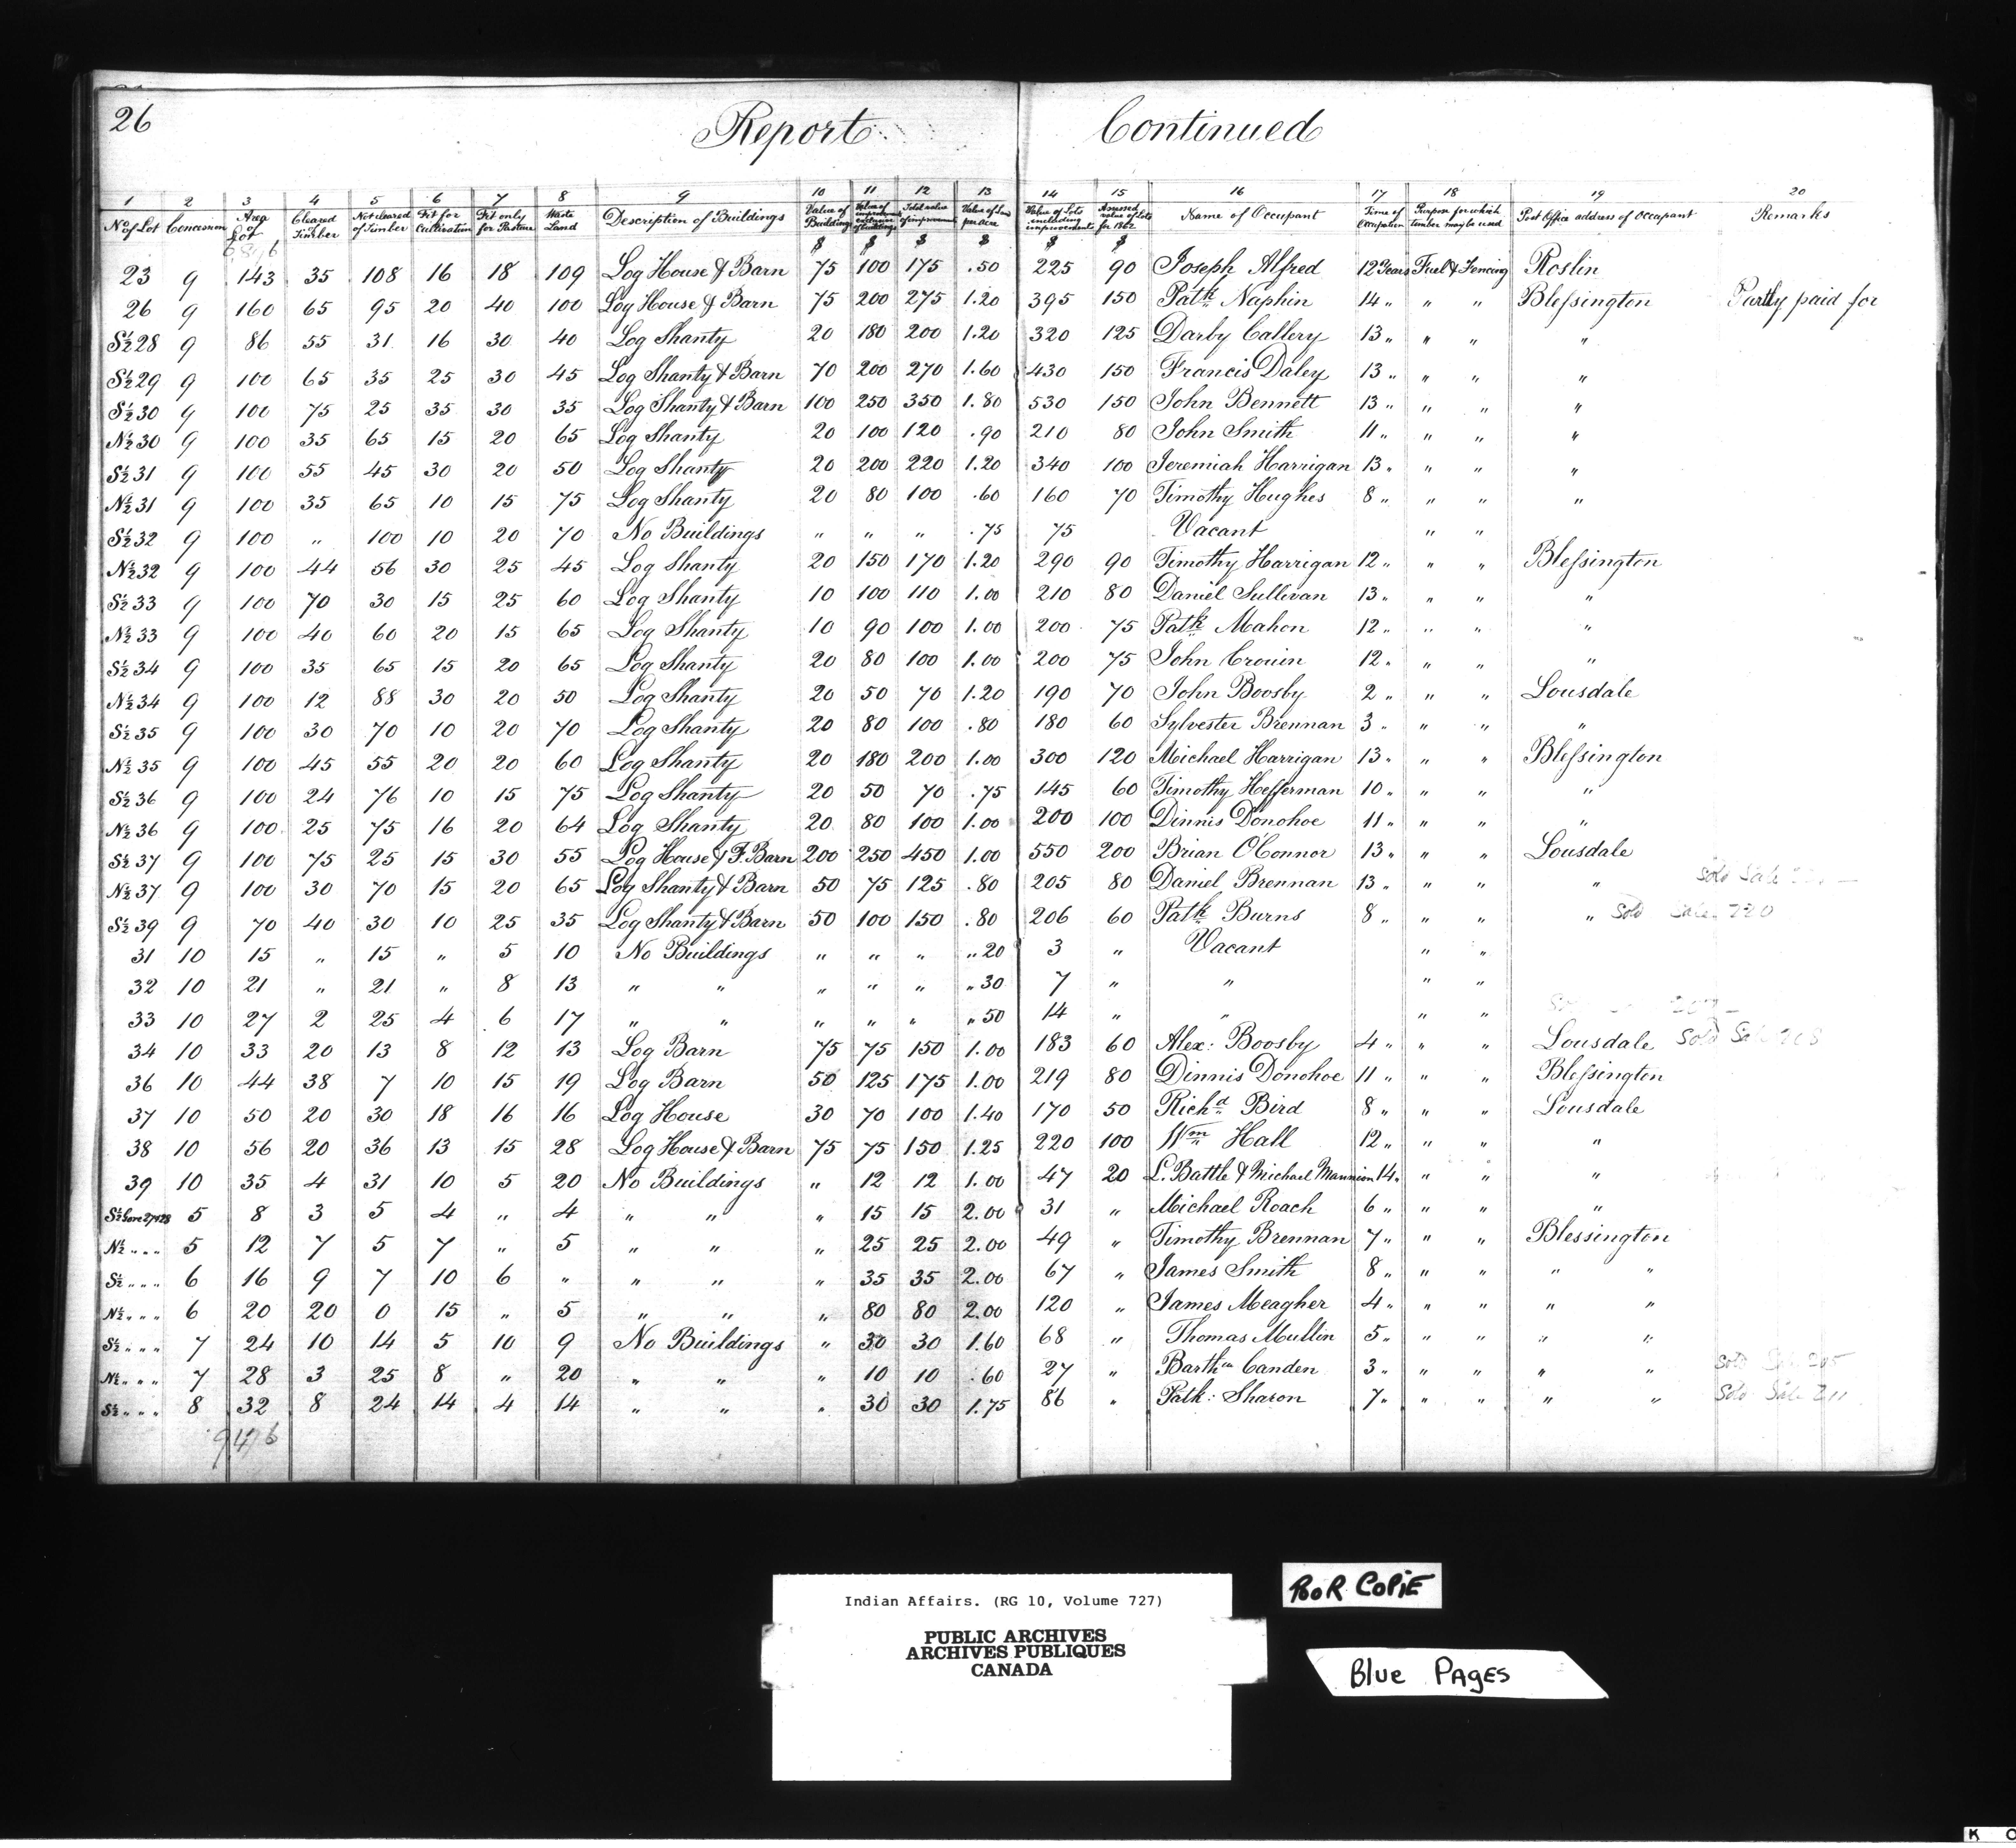 26 Report Continued
1 2 3 4 5 6 7 8 9 10 11 12 13 14 15 16 17 18 19 20
No of Lot Concession Area of Lot Cleared of Timber Not cleared of Timber Fit for Cultivation Fit only for Pasture Waste Land Description of Buildings Value of Buildings Value of improvements exclusive of buildings Total value of improvements Value of Land per Acre Value of Lots including improvements Assessed value of Lots for 1862 Name of Occupant Time of Occupation Purpose for which timber may be used Post Office address of Occupant Remarks
$ $ $ $ $ $
23 9 143 35 108 16 18 109 Log House & Barn 75 100 175 .50 225 90 Joseph Alfred 12 Years Fuel & Fencing Roslin
26 9 160 65 95 20 40 100 Log House & Barn 75 200 275 1.20 395 150 Patk Naphin 14 " " " Blessington Partly paid for
S½ 28 9 86 55 31 16 30 40 Log Shanty 20 180 200 1.20 320 125 Darby Callery 13 " " " "
S½ 29 9 100 65 35 25 30 45 Log Shanty & Barn 70 200 270 1.60 430 150 Francis Daley 13 " " " "
S½ 30 9 100 75 25 35 30 35 Log Shanty & Barn 100 250 350 1.80 530 150 John Bennett 13 " " " "
N½ 30 9 100 35 65 15 20 65 Log Shanty 20 100 120 .90 210 80 John Smith 11 " " " "
S½ 31 9 100 55 45 30 20 50 Log Shanty 20 200 220 1.20 340 100 Jeremiah Harrigan 13 " " " "
N½ 31 9 100 35 65 10 15 75 Log Shanty 20 80 100 .60 160 70 Timothy Hughes 8 " " " "
S½ 32 9 100 " 100 10 20 70 No Buildings " " " .75 75 Vacant " "
N½ 32 9 100 44 56 30 25 45 Log Shanty 20 150 170 1.20 290 90 Timothy Harrigan 12 " " " Blessington
S½ 33 9 100 70 30 15 25 60 Log Shanty 10 100 110 1.00 210 80 Daniel Sullivan 13 " " " "
N½ 33 9 100 40 60 20 15 65 Log Shanty 10 90 100 1.00 200 75 Patk Mahon 12 " " " "
S½ 34 9 100 35 65 15 20 65 Log Shanty 20 80 100 1.00 200 75 John Crouin 12 " " " "
N½ 34 9 100 12 88 30 20 50 Log Shanty 20 50 70 1.20 190 70 John Boosby 2 " " " Lousdale
S½ 35 9 100 30 70 10 20 70 Log Shanty 20 80 100 .80 180 60 Sylvester Brennan 3 " " " "
N½ 35 9 100 45 55 20 20 60 Log Shanty 20 180 200 1.00 300 120 Michael Harrigan 13 " " " Blessington
S½ 36 9 100 24 76 10 15 75 Log Shanty 20 50 70 .75 145 60 Timothy Hefferman 10 " " " "
N½ 36 9 100 25 75 16 20 64 Log Shanty 20 80 100 1.00 200 100 Dinnis Donohoe 11 " " " "
S½ 37 9 100 75 25 15 30 55 Log House & F. Barn 200 250 450 1.00 550 200 Brian O'Connor 13 " " " Lousdale
N½ 37 9 100 30 70 15 20 65 Log Shanty & Barn 50 75 125 .80 205 80 Daniel Brennan 13 " " " " Sold Sale
S½ 39 9 70 40 30 10 25 35 Log Shanty & Barn 50 100 150 .80 206 60 Patk Burns 8 " " " " Sold Sale 220
31 10 15 " 15 " 5 10 No Buildings " " " " 20 3 " Vacant " "
32 10 21 " 21 " 8 13 " " " " " " 30 7 " " " "
33 10 27 2 25 4 6 17 " " " " " " 50 14 " " " "
34 10 33 20 13 8 12 13 Log Barn 75 75 150 1.00 183 60 Alex: Boosby 4 " " " Lousdale Sold Sale 208
36 10 44 38 7 10 15 19 Log Barn 50 125 175 1.00 219 80 Dinnis Donohoe 11 " " " Blessington
37 10 50 20 30 18 16 16 Log House 30 70 100 1.40 170 50 Richd Bird 8 " " " Lousdale
38 10 56 20 36 13 15 28 Log House & Barn 75 75 150 1.25 220 100 Wm Hall 12 " " " "
39 10 35 4 31 10 5 20 No Buildings " 12 12 1.00 47 20 L. Battle & Michael Mannion 14 " " " "
S½ Gore 27&28 5 8 3 5 4 " 4 " " " 15 15 2.00 31 " Michael Roach 6 " " " "
N½ " " " 5 12 7 5 7 " 5 " " " 25 25 2.00 49 " Timothy Brennan 7 " " " Blessington
S½ " " " 6 16 9 7 10 6 " " " " 35 35 2.00 67 " James Smith 8 " " " " "
N½ " " " 6 20 20 0 15 " 5 " " " 80 80 2.00 120 " James Meagher 4 " " " " "
S½ " " " 7 24 10 14 5 10 9 No Buildings " 30 30 1.60 68 " Thomas Mullin 5 " " " " "
N½ " " " 7 28 3 25 8 " 20 " " " 10 10 .60 27 " Barthw Canden 3 " " " " " Sold
S½ " " " 8 32 8 24 14 4 14 " " " 30 30 1.75 86 " Patk: Sharon 7 " " " " " Sold Sale 211
9476
Indian Affairs. (RG 10, Volume 727)
PUBLIC ARCHIVES
ARCHIVES PUBLIQUES
CANADA
POOR COPIE
Blue PAGES